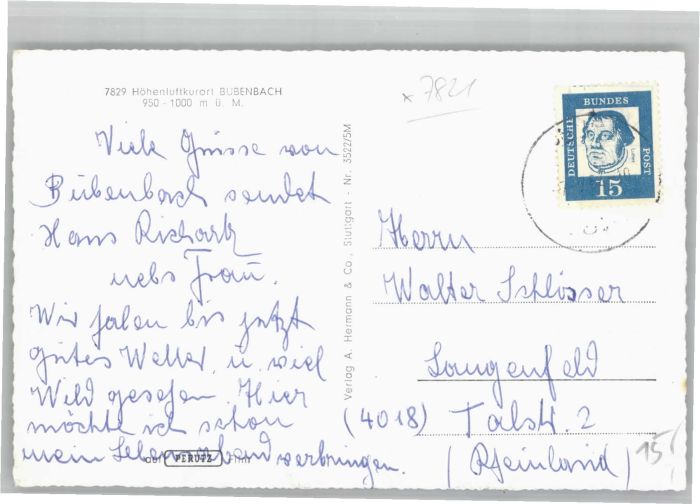 7829 Höhenluftkurort BUBENBACH
950 - 1000 m ü. M.
Viele Grüsse von
Bubenbach sendet
Hans Richartz
nebst Frau.
Wir haben bis jetzt
gutes Wetter u. viel
Wild gesehen. Hier
möchte ich schon
mein Lebensabend verbringen.
auf PERUTZ Film
Verlag A. Hermann & Co., Stuttgart - Nr. 3522/5M
x 7821
DEUTSCHE
BUNDES
POST
Luther
15
Herrn
Walter Schlösser
Langenfeld
(4018) Talstr. 2
(Rheinland)
15